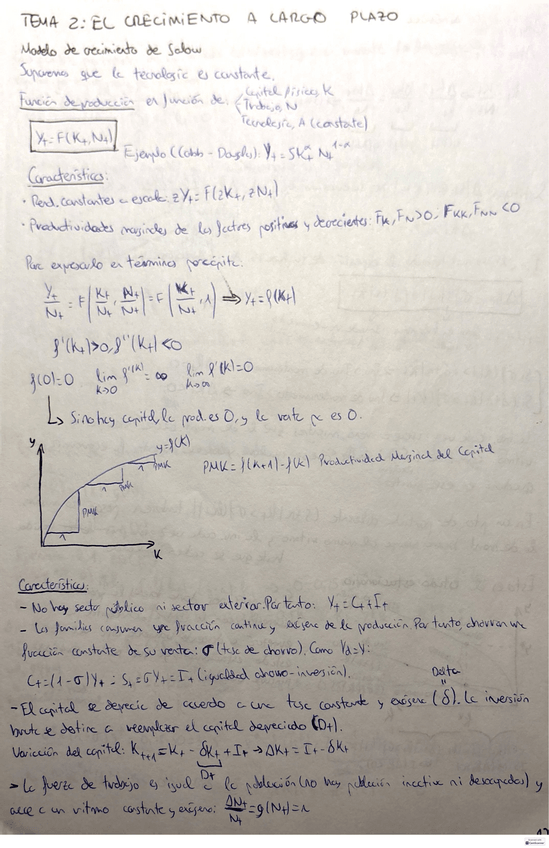 TEMA 2: EL CRECIMIENTO A LARGO PLAZO
Modelo de crecimiento de Solow
Suponemos que la tecnología es constante.
Función de producción en función de: { Capital físico, K
Trabajo, N
Tecnología, A (constante)
Yt = F(Kt, Nt)
Ejemplo (Cobb-Douglas): Yt = SKt^α Nt^1-α
Características:
· Rend. constantes a escala: zYt = F(zKt, zNt)
· Productividades marginales de los factores positivas y decrecientes: FK, FN > 0; FKK, FNN < 0
Para expresarlo en términos per cápita:
Yt/Nt = F(Kt/Nt, Nt/Nt) = F(Kt/Nt, 1) ⇒ Yt = f(Kt)
f'(Kt) > 0, f''(Kt) < 0
f(0) = 0 lim k→0 f'(k) = ∞ lim k→∞ f'(k) = 0
↳ Si no hay capital, la prod. es 0, y la renta pc es 0.
y
y = f(k)
PMK
1
PMK
1
PMK
1
K
PMK = f(k+1) - f(k) Productividad Marginal del Capital
Características:
- No hay sector público ni sector exterior. Por tanto: Yt = Ct + It
- Las familias consumen una fracción continua y exógena de la producción. Por tanto, ahorran una
fracción constante de su renta: σ (tasa de ahorro). Como Yd = Y:
Ct = (1 - σ) Yt = St = σYt = It (igualdad ahorro-inversión).
Delta
"
- El capital se deprecia de acuerdo a una tasa constante y exógena (δ). La inversión
bruta se destina a reemplazar el capital depreciado (Dt).
Variación del capital: Kt+1 = Kt - δKt + It → ΔKt = It - δKt
Dt
> La fuerza de trabajo es igual a la población (no hay población inactiva ni desocupados) y
crece a un ritmo constante y exógeno: ΔNt/Nt = g(Nt) = n